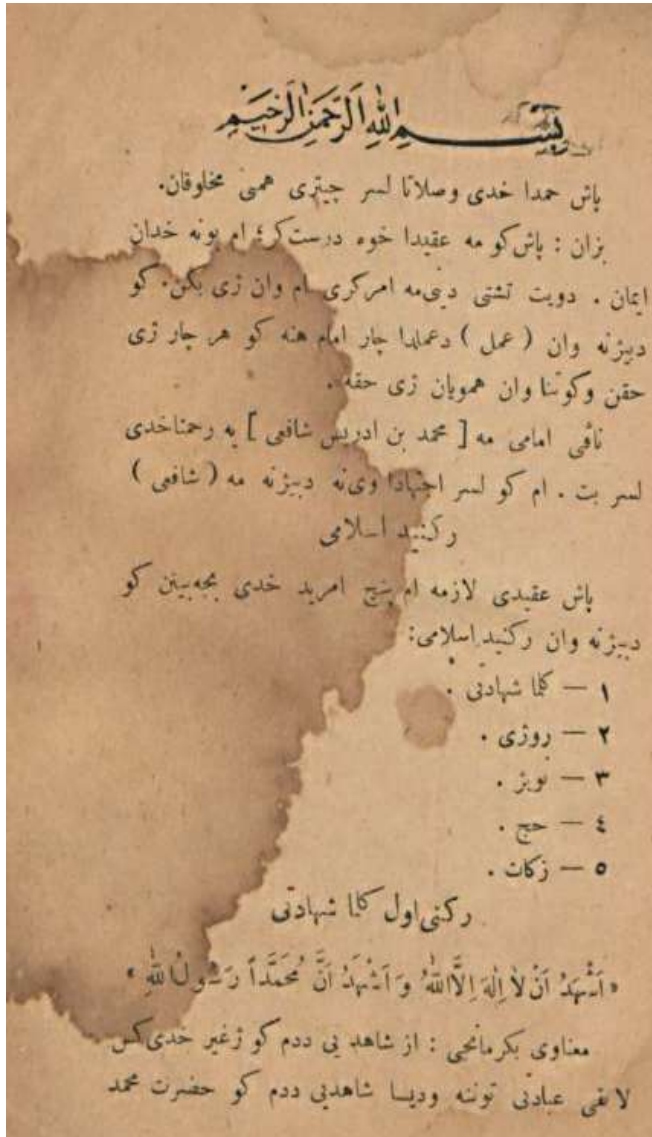 بِسْمِ اللهِ اَلرَّحْمَنِ الرَّحِيمِ
پاش حمدا خدی وصلاتا لسر چیتری همی مخلوقان.
بزان : پاش کو مه عقیدا خوه درست کر؛ ام بونه خدان
ایمان . دویت تشتی دینی مه امر کری ام وان ژی بکن. کو
دبیژنه وان ( عمل ) دعملدا چار امام هنه کو هر چار ژی
حقن وکوتنا وان همویان ژی حقه .
ناڤی امامی مه [ محمد بن ادریس شافعی ] یه رحمتاخدی
لسر بت . ام کو لسر اجتهادا وی نه دبیژنه مه ( شافعی )
رکنید اسلامی
پاش عقیدی لازمه ام پنج امرید خدی بجه بینن کو
دبیژنه وان رکنید اسلامی:
١ — کلما شهادتی .
٢ — روژی .
٣ — نویژ .
٤ — حج .
٥ — زکات .
رکنی اول کلما شهادتی
« اَشْهَدُ اَنْ لَا اِلٰهَ اِلَّا اللهُ وَ اَشْهَدُ اَنَّ مُحَمَّداً رَسُولُ اللهِ »
معناوی بکرمانجی : از شاهد یی ددم کو ژغیر خدی کس
لایقی عبادتی توننه ودیسا شاهدیی ددم کو حضرت محمد